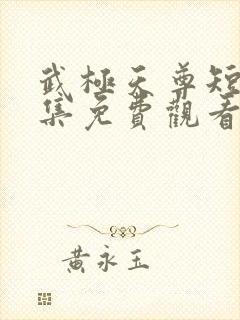 武極天尊短
集免費觀看
黃永玉